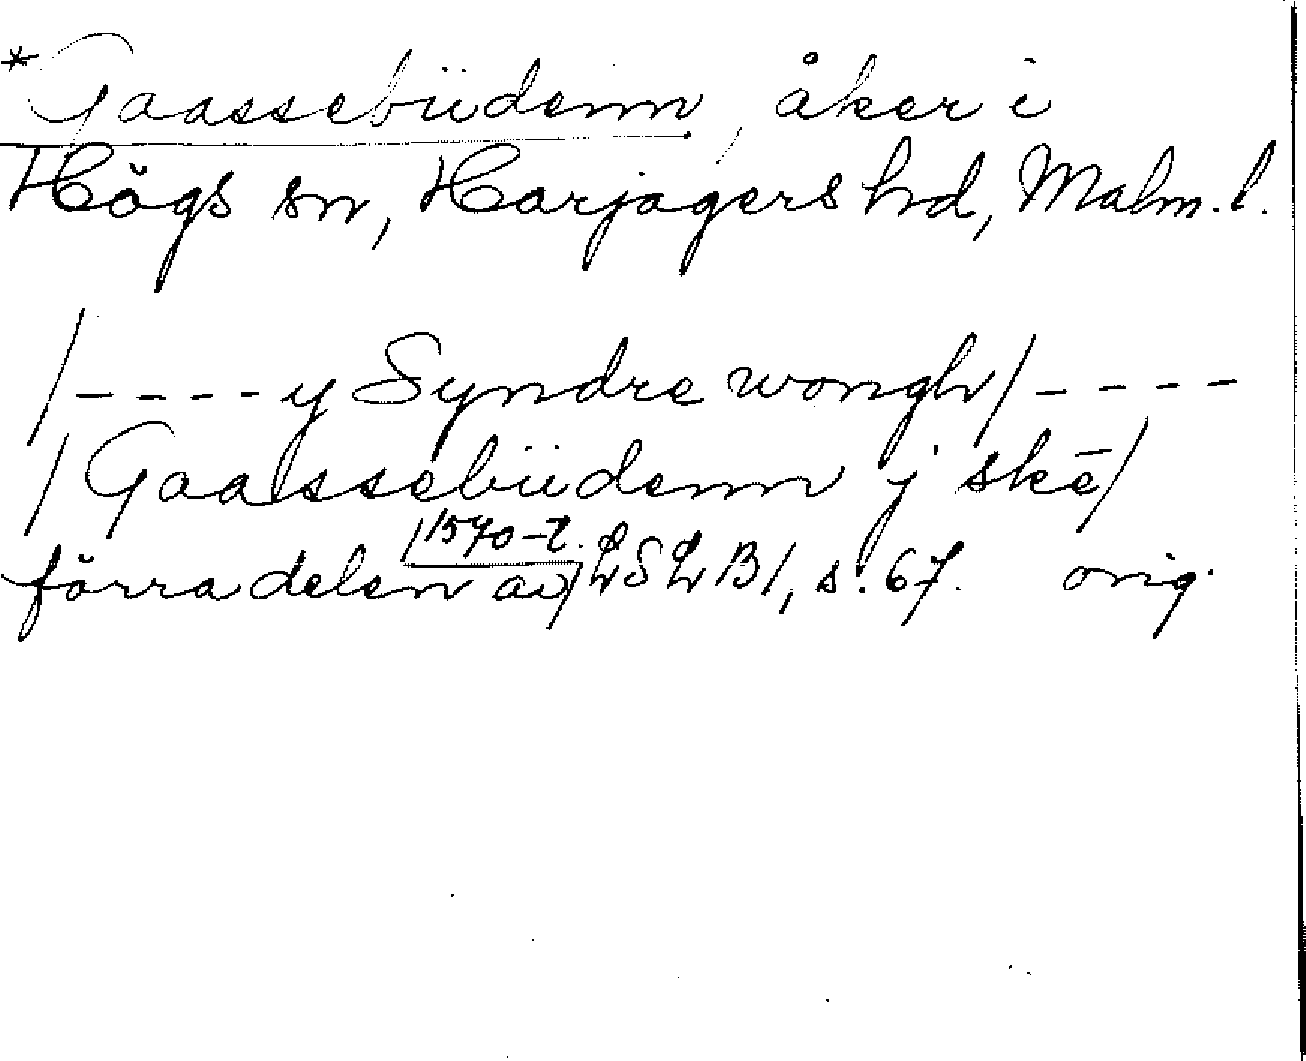 *Gaassebüdenn, åker i
Högs sn, Harjagers hd, Malm. l.
/----y Syndre wongh/----
/Gaassebüdenn j skē/
/1570-t.
förra delen av/ LSLB1, s. 67. orig.